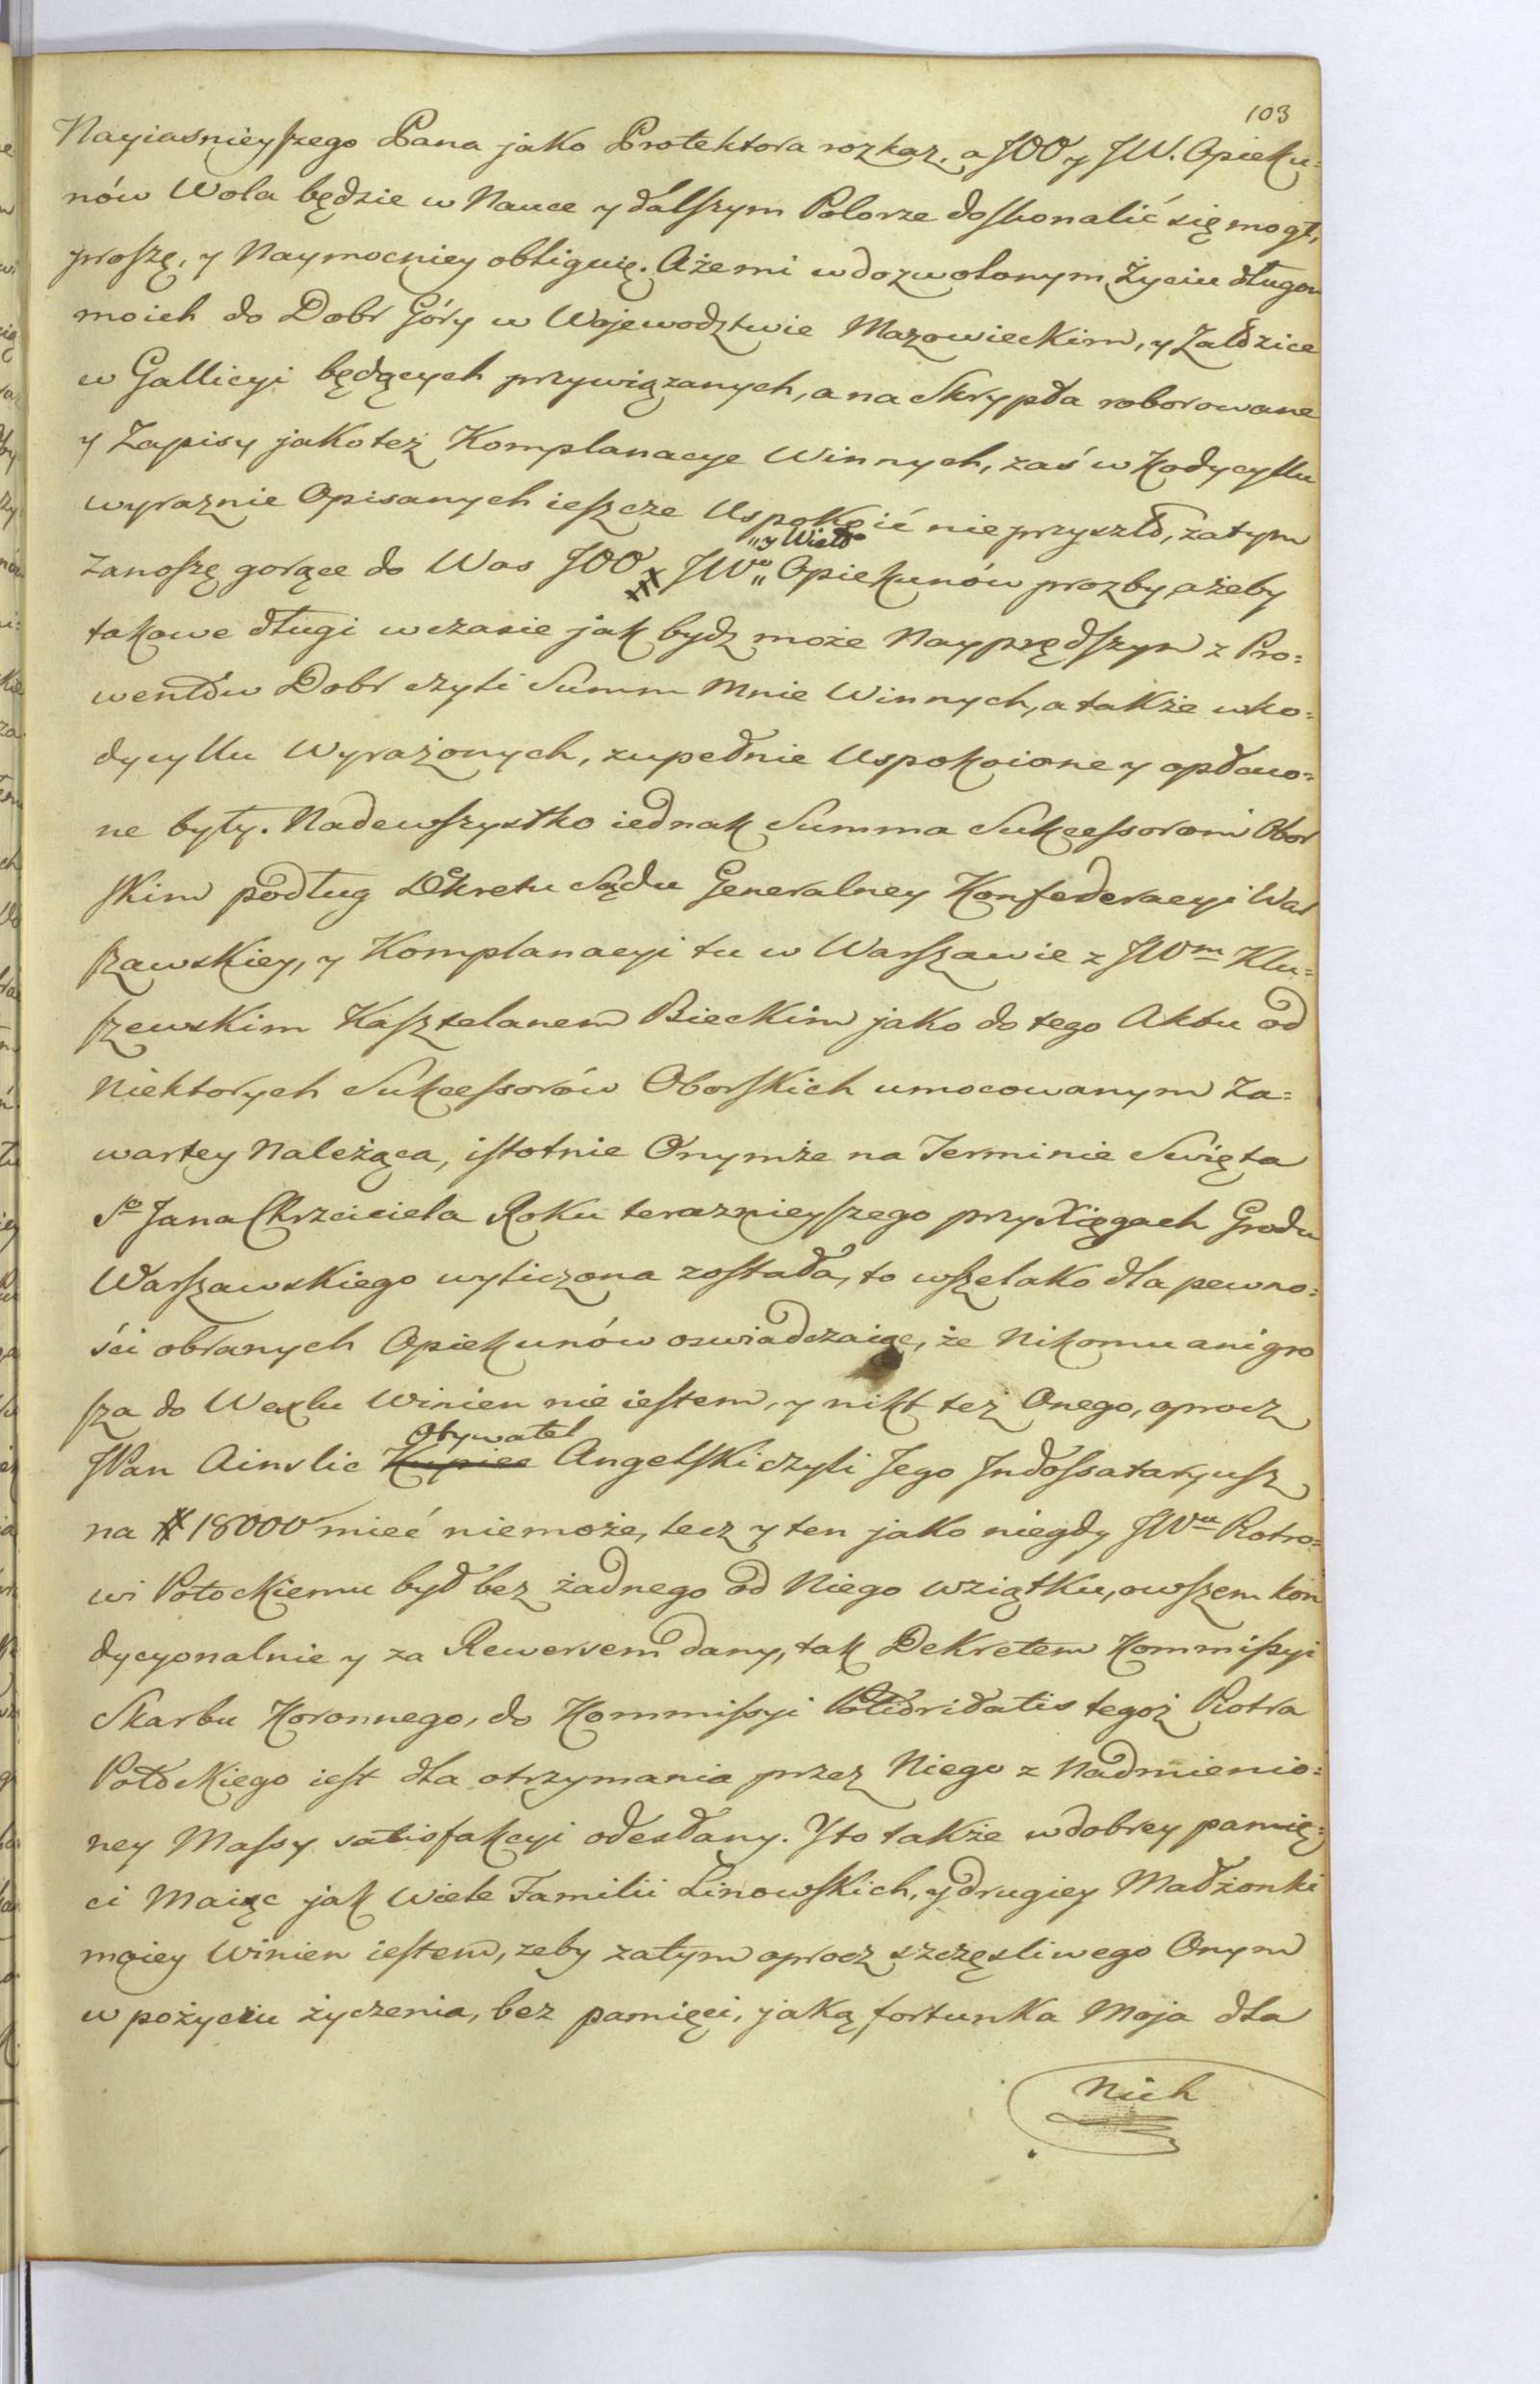 103
Nayiasnieyszego Pana jako Protektora rozkaz, a JOO y JW. Opieku=
nów Wola będzie w Nauce y dalszym Polorze doskonalić się mogł,
proszę, y Naymocniey obliguię. Aże mi w dozwolonym Życiu długow
moich do Dobr Góry w Wojewodztwie Mazowieckim, y Załdzice
w Gallicyi będących przywiązanych, a na Skrypta roborowane
y Zapisy jako też Komplanacye Winnych, zaś w Kodycyllu
wyraznie Opisanych ieszcze Uspokoić nie przyszło, zatym
"y Wielo
zanoszę gorące do Was JOO JWo" Opiekunów prozby, ażeby
takowe długi w czasie jak bydz może Nayprędszym z Pro=
wentów Dobr czyli Summ Mnie Winnych, a także w ko=
dycyllu Wyrażonych, zupełnie Uspokoione y opłaco=
ne były. Nadewszystko iednak Summa Sukcessorom Obor
skim podług Dekretu Sądu Generalney Konfederacyi War
szawskiey, y Komplanacyi tu w Warszawie z JWm Klu=
szewskim Kasztelanem Bieckim jako do tego Aktu od
Niektorych Sukcessorów Oborskich umocowanym Za=
wartey Należąca, istotnie Onymże na Terminie Swięta
So Jana Chrzciciela Roku teraznieyszego przy Xięgach Grodu
Warszawskiego wyliczona została, to wszelako dla pewno=
ści obranych Opiekunów oswiadczaiąc, że Nikomu ani gro
sza do Wexlu Winien nie iestem, y nikt też Onego, oprocz
Obywatel
JPan Ainslie Kupiec Angelski czyli Jego Indossataryusz
na # 18000 mieć niemoże, lecz y ten jako niegdy JWu Piotro=
wi Potockiemu był bez żadnego od Niego wziątku, owszem kon
dycyonalnie y za Rewersem dany, tak Dekretem Kommissyi
Skarbu Koronnego, do Kommissyi Potioridatis tegoż Piotra
Potockiego iest dla otrzymania przez Niego z Nadmienio=
ney Massy satisfakcyi odesłany. Y to także w dobrey pamię=
ci Maiąc jak Wiele Familii Linowskich, y drugiey Małżonki
moiey Winien iestem, zeby zatym oprocz szczęsliwego Onym
w pożyciu życzenia, bez pamięci, jaką fortunka Moja dla
Nich